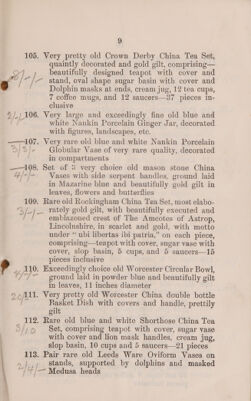 9
105. Very pretty old Crown Derby China Tea Set,
quaintly decorated and gold gilt, comprising—
beautifully designed teapot with cover and
stand, oval shape sugar basin with cover and
Dolphin masks at ends, cream jug, 12 tea cups,
7 coffee mugs, and 12 saucers—37 pieces in-
clusive
106. Very large and exceedingly fine old blue and
white Nankin Porcelain Ginger Jar, decorated
with figures, landscapes, etc.
107. Very rare old blue and white Nankin Porcelain
Globular Vase of very rare quality, decorated
in compartments
108. Set of 3 very choice old mason stone China
Vases with side serpent handles, ground laid
in Mazarine blue and beautifully gold gilt in
leaves, flowers and butterflies
109. Rare old Rockingham China Tea Set, most elabo-
rately gold gilt, with beautifully executed and
emblazoned crest of The Amcotes of Astrop,
Lincolnshire, in scarlet and gold, with motto
under “ ubi libertas ibi patria,” on each piece,
comprising—teapot with cover, sugar vase with
cover, slop basin, 5 cups, and 5 saucers—15
pieces inclusive
110. Exceedingly choice old Worcester Circular Bowl,
ground laid in powder blue and beautifully gilt
in leaves, 11 inches diameter
111. Very pretty old Worcester China double bottle
Basket Dish with covers and handle, prettily
gilt
112. Rare old blue and white Shorthose China Tea
3/10 Set, comprising teapot with cover, sugar vase
with cover and lion mask handles, cream jug,
slop basin, 10 cups and 5 saucers—21 pieces
113. Pair rare old Leeds Ware Oviform Vases on
stands, supported by dolphins and masked
2/4/- Medusa heads